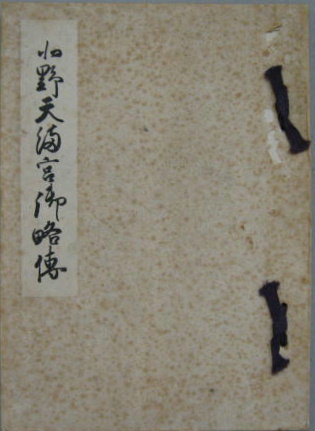 北野天満宮御略傳